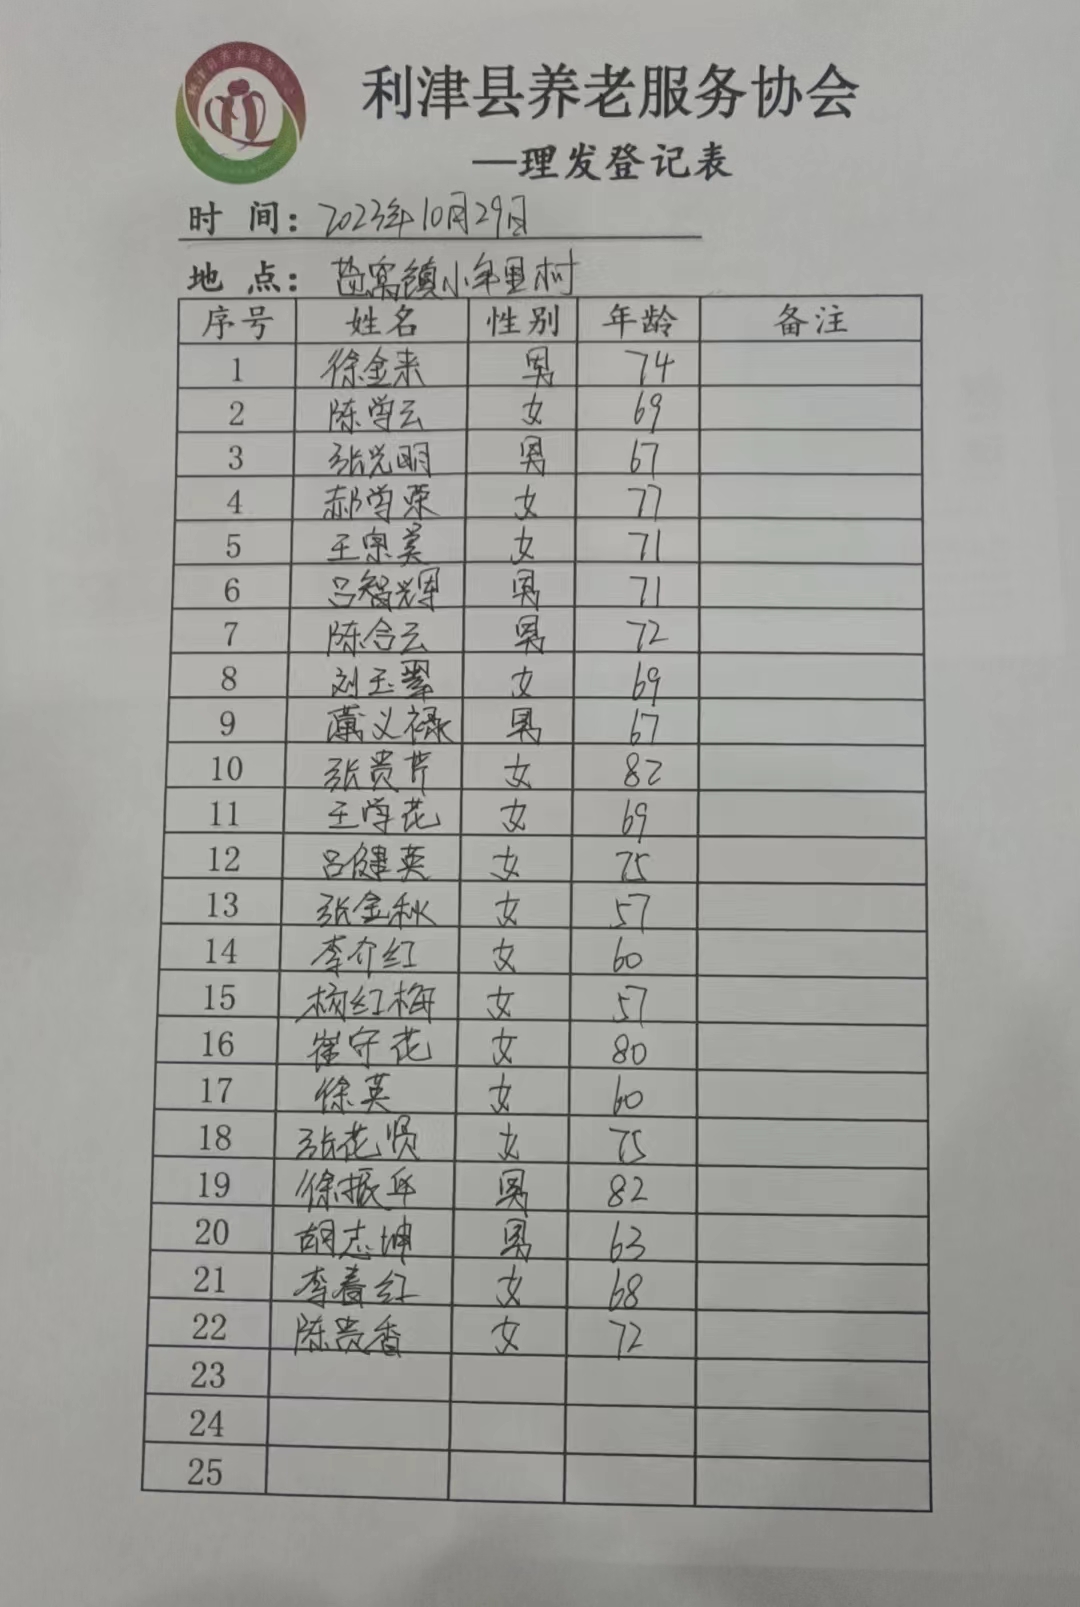 利津县养老服务协会
利津县养老服务协会
—理发登记表
时 间: 2023年10月29日
地 点: 盐窝镇小牟里村
序号 姓名 性别 年龄 备注
1 徐金来 男 74
2 陈学云 女 69
3 张光明 男 67
4 郝学荣 女 77
5 王宗美 女 71
6 吕智辉 男 71
7 陈合云 男 72
8 刘玉翠 女 69
9 义禄 男 67
10 张贵芹 女 82
11 王学花 女 69
12 吕健英 女 75
13 张金秋 女 57
14 李介红 女 60
15 杨红梅 女 57
16 崔守花 女 80
17 徐英 女 60
18 张花贤 女 75
19 徐振年 男 82
20 胡志坤 男 63
21 李春红 女 68
22 陈贵香 女 72
23
24
25